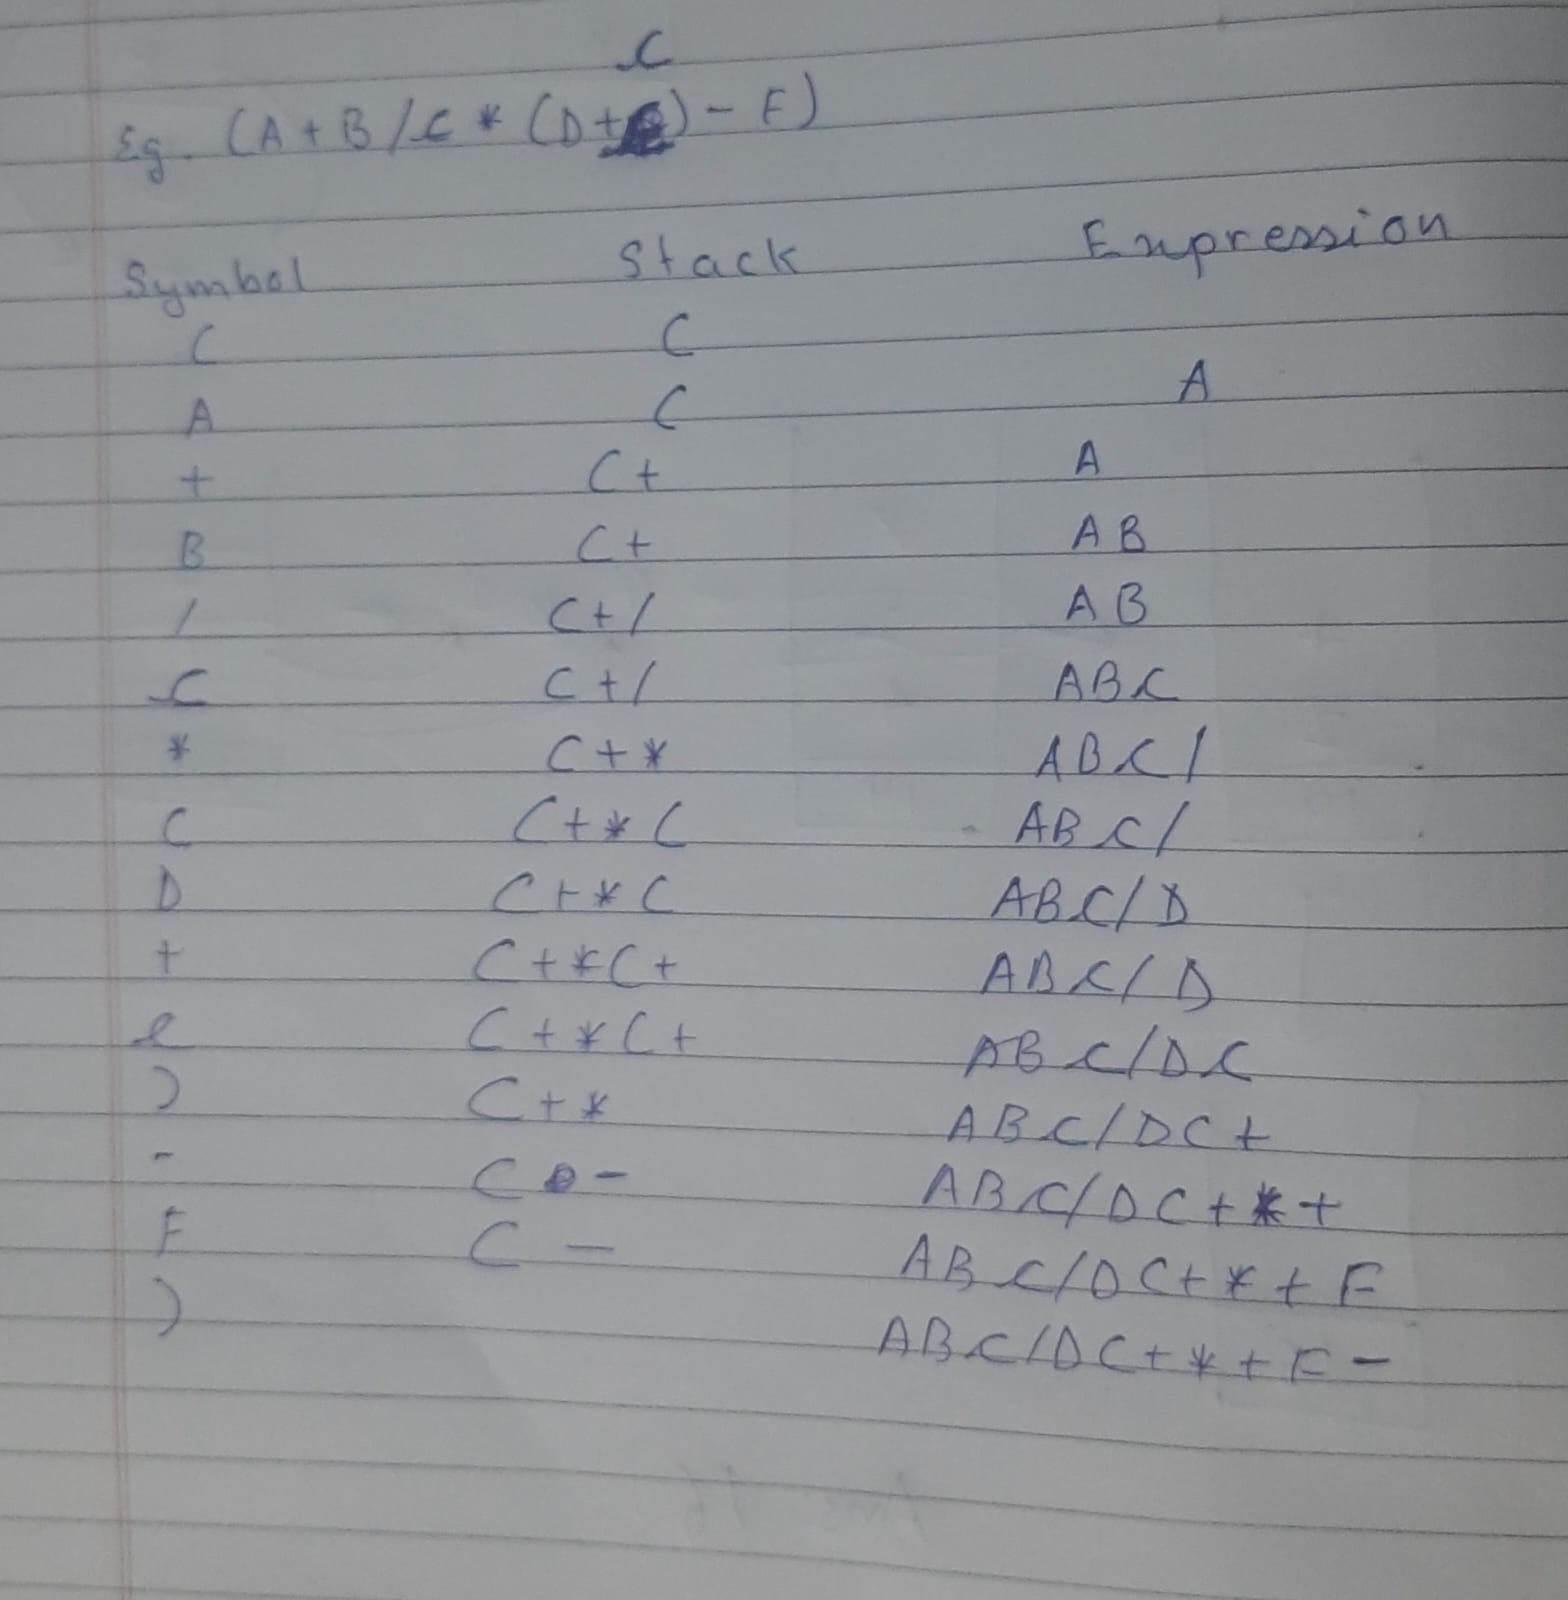 C
Eg. (A + B / C * (D + ) - F)
Symbol Stack Expression
( (
A ( A
+ (+ A
B (+ AB
/ (+/ AB
C (+/ ABC
* (+* ABC/
( (+*( ABC/
D (+*( ABC/D
+ (+*(+ ABC/D
e (+*(+ ABC/DC
) (+* ABC/DC+
- ( - ABC/DC+*+
F ( - ABC/DC+*+F
) ABC/DC+*+F-